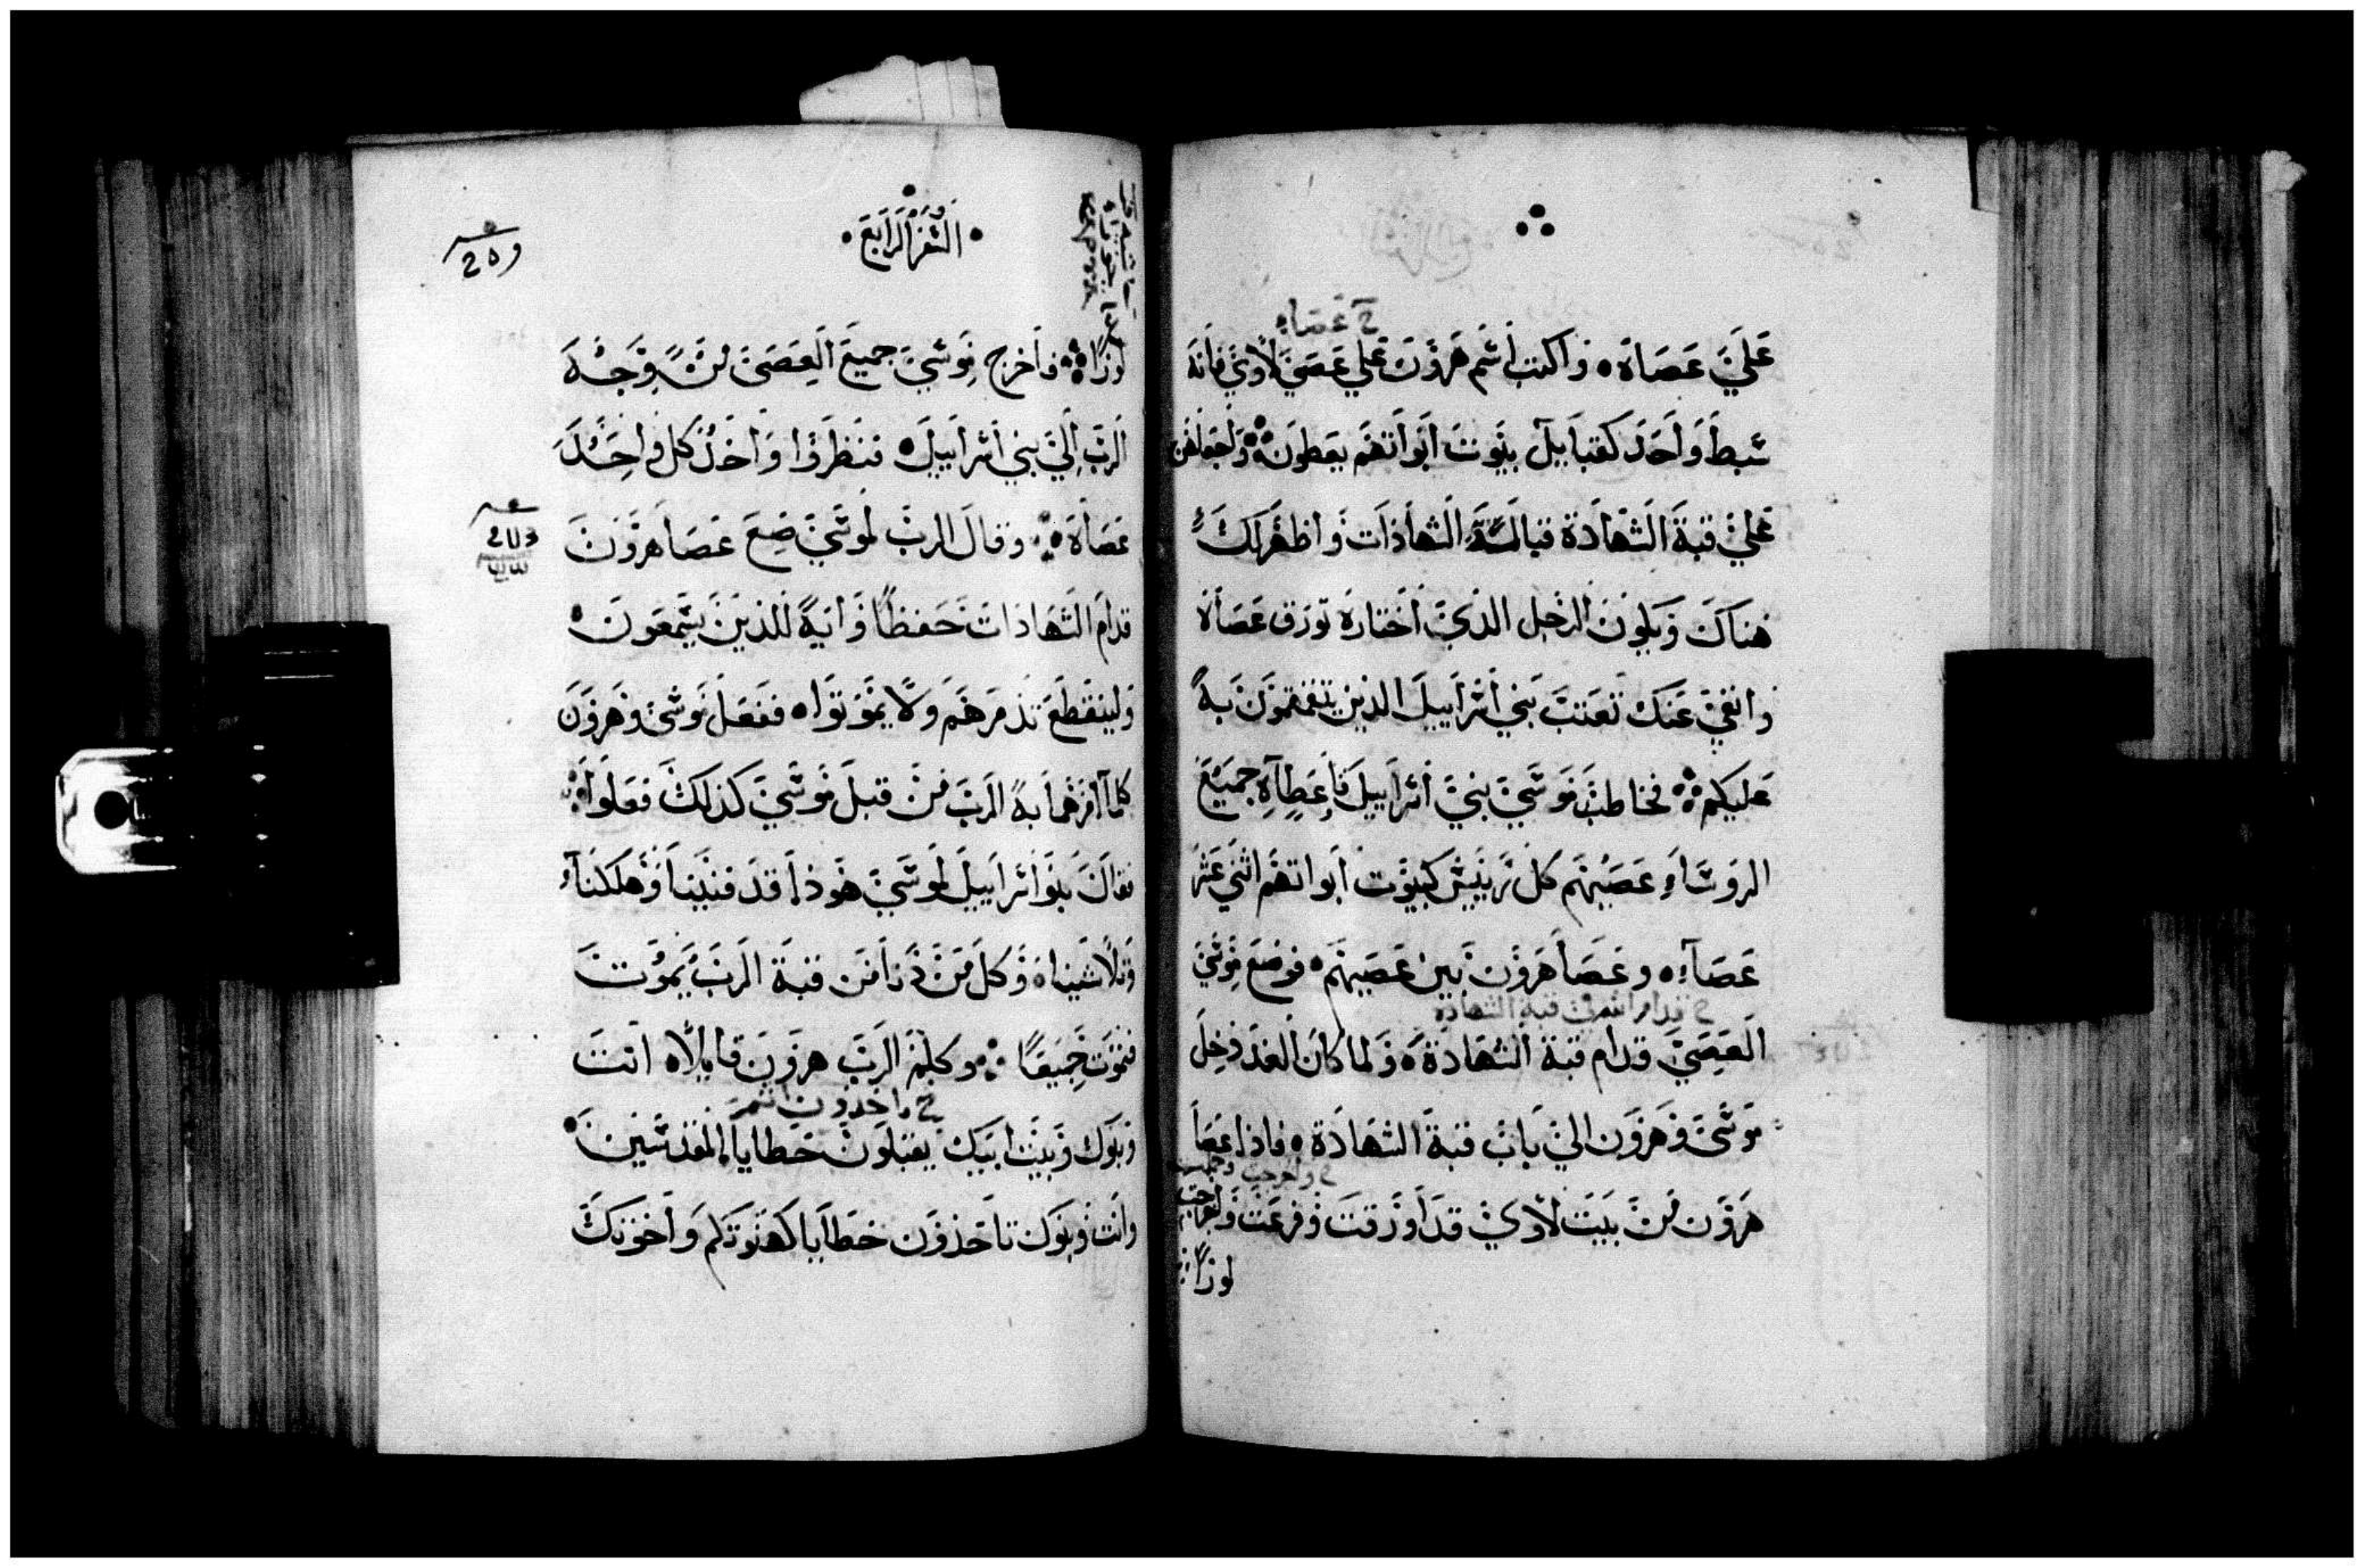 خ عصاه
علي عصاة واكتب اسم هرون علي عصي لاوي فانه
سبط واحد كقبابيل بيوت ابواتهم يعطون واجعلهن
علي قبة الشهادة قبالة الشهادات واظهر لك
هناك ويكون الرجل الذي اختاره تورق عصاة
وانفي عنك تعنت بني اسراييل الذين يتقمقمون به
عليكم فخاطب موسي بني اسراييل فاعطاه جميع
الروساء عصيهم كل رييس كبيوت ابواتهم اثني عشر
عصاه وعصا هرون بين عصيهم فوضع موسي
خ قدام الله في قبة الشهادة
العصي قدام قبة الشهادة ولما كان الغد دخل
موسي وهرون الي باب قبة الشهادة فاذا عصا
خ واخرجت
هرون من بيت لاوي قد اورقت وفرعت واخرجت
لوزا
السفر الرابع
لوزا فاخرج موسي جميع العصي من وجه
الرب الي بني اسراييل فنظروا واخذ كل واحد
عصاة وقال الرب لموسي ضع عصا هرون
قدام الشهادات حفظا واية للذين يسمعون
ولينقطع تذمرهم ولا يموتوا ففعل موسي وهرون
كما امرهما به الرب من قبل موسي كذلك فعلوا
فقال بنوا اسراييل لموسي هوذا قد فنينا وهلكنا
وتلاشينا وكل من دنا من قبة الرب يموت
فنموت جميعا وكلم الرب هرون قايلا انت
خ تاخدون انتم
وبنوك وبيت ابيك يقبلون خطايا المقدسين
وانت وبنوك تاخذون خطايا كهنوتكم واخوتك